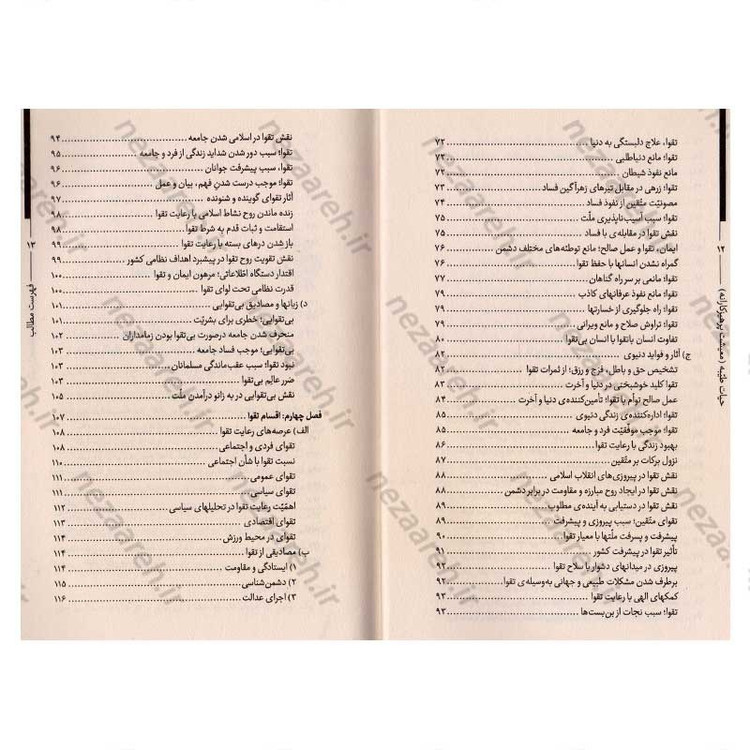 ۱۲
حیات طیّبه (معیشت پرهیزکارانه)
تقوا، علاج دلبستگی به دنیا ۷۲
تقوا؛ مانع دنیاطلبی ۷۲
مانع نفوذ شیطان ۷۲
تقوا؛ زرهی در مقابل تیرهای زهرآگین فساد ۷۳
مصونیّت متّقین از نفوذ فساد ۷۴
تقوا؛ سبب آسیب‌ناپذیری ملّت ۷۵
نقش تقوا در مقابله‌ی با فساد ۷۵
ایمان، تقوا و عمل صالح؛ مانع توطئه‌های مختلف دشمن ۷۶
گمراه نشدن انسانها با حفظ تقوا ۷۶
تقوا؛ مانعی بر سر راه گناهان ۷۷
تقوا؛ مانع نفوذ عرفانهای کاذب ۷۸
تقوا؛ راه جلوگیری از خسارتها ۷۹
تقوا؛ تراوش صلاح و مانع ویرانی ۷۹
تفاوت انسان باتقوا با انسان بی‌تقوا ۸۰
ج) آثار و فواید دنیوی ۸۲
تشخیص حق و باطل، فرج و رزق؛ از ثمرات تقوا ۸۲
تقوا کلید خوشبختی در دنیا و آخرت ۸۳
عمل صالح توأم با تقوا؛ تأمین‌کننده‌ی دنیا و آخرت ۸۴
تقوا؛ اداره‌کننده‌ی زندگی دنیوی ۸۵
تقوا؛ موجب موفّقیّت فرد و جامعه ۸۵
بهبود زندگی با رعایت تقوا ۸۶
نزول برکات بر متّقین ۸۷
نقش تقوا در پیروزی‌های انقلاب اسلامی ۸۸
نقش تقوا در ایجاد روح مبارزه و مقاومت در برابر دشمن ۸۸
نقش تقوا در دستیابی به آینده‌ی مطلوب ۸۹
تقوای متّقین؛ سبب پیروزی و پیشرفت ۸۹
پیشرفت و پسرفت ملّتها با معیار تقوا ۹۰
تأثیر تقوا در پیشرفت کشور ۹۱
پیروزی در میدانهای دشوار با سلاح تقوا ۹۲
برطرف شدن مشکلات طبیعی و جهانی به‌وسیله‌ی تقوا ۹۲
کمکهای الهی با رعایت تقوا ۹۳
تقوا؛ سبب نجات از بن‌بست‌ها ۹۳
۱۳
فهرست مطالب
نقش تقوا در اسلامی شدن جامعه ۹۴
تقوا؛ سبب دور شدن شداید زندگی از فرد و جامعه ۹۵
تقوا، سبب پیشرفت جوانان ۹۶
تقوا؛ موجب درست شدنِ فهم، بیان و عمل ۹۶
آثار تقوای گوینده و شنونده ۹۷
زنده ماندن روح نشاط اسلامی با رعایت تقوا ۹۸
استقامت و ثبات قدم به شرط تقوا ۹۸
باز شدن درهای بسته با رعایت تقوا ۹۹
نقش تقویت روح تقوا در پیشبرد اهداف نظامی کشور ۹۹
اقتدار دستگاه اطّلاعاتی؛ مرهون ایمان و تقوا ۱۰۰
قدرت نظامی تحت لوای تقوا ۱۰۰
د) زیانها و مصادیق بی‌تقوایی ۱۰۱
بی‌تقوایی؛ خطری برای بشریّت ۱۰۱
منحرف شدن جامعه درصورت بی‌تقوا بودن زمامداران ۱۰۲
بی‌تقوایی؛ موجب فساد جامعه ۱۰۳
نبود تقوا؛ سبب عقب‌ماندگی مسلمانان ۱۰۳
ضرر عالِم بی‌تقوا ۱۰۳
نقش بی‌تقوایی در به زانو درآمدن ملّت ۱۰۵
فصل چهارم: اقسام تقوا ۱۰۷
الف) عرصه‌های رعایت تقوا ۱۰۸
تقوای فردی و اجتماعی ۱۰۸
نسبت تقوا با شأن اجتماعی ۱۱۰
تقوای عمومی ۱۱۱
تقوای سیاسی ۱۱۱
اهمّیّت رعایت تقوا در تحلیلهای سیاسی ۱۱۲
تقوای اقتصادی ۱۱۳
تقوای در محیط ورزش ۱۱۴
ب) مصادیقی از تقوا ۱۱۴
۱) ایستادگی و مقاومت ۱۱۴
۲) دشمن‌شناسی ۱۱۵
۳) اجرای عدالت ۱۱۶
nezaareh.ir
nezaareh.ir
nezaareh.ir
nezaareh.ir
nezaareh.ir
nezaareh.ir